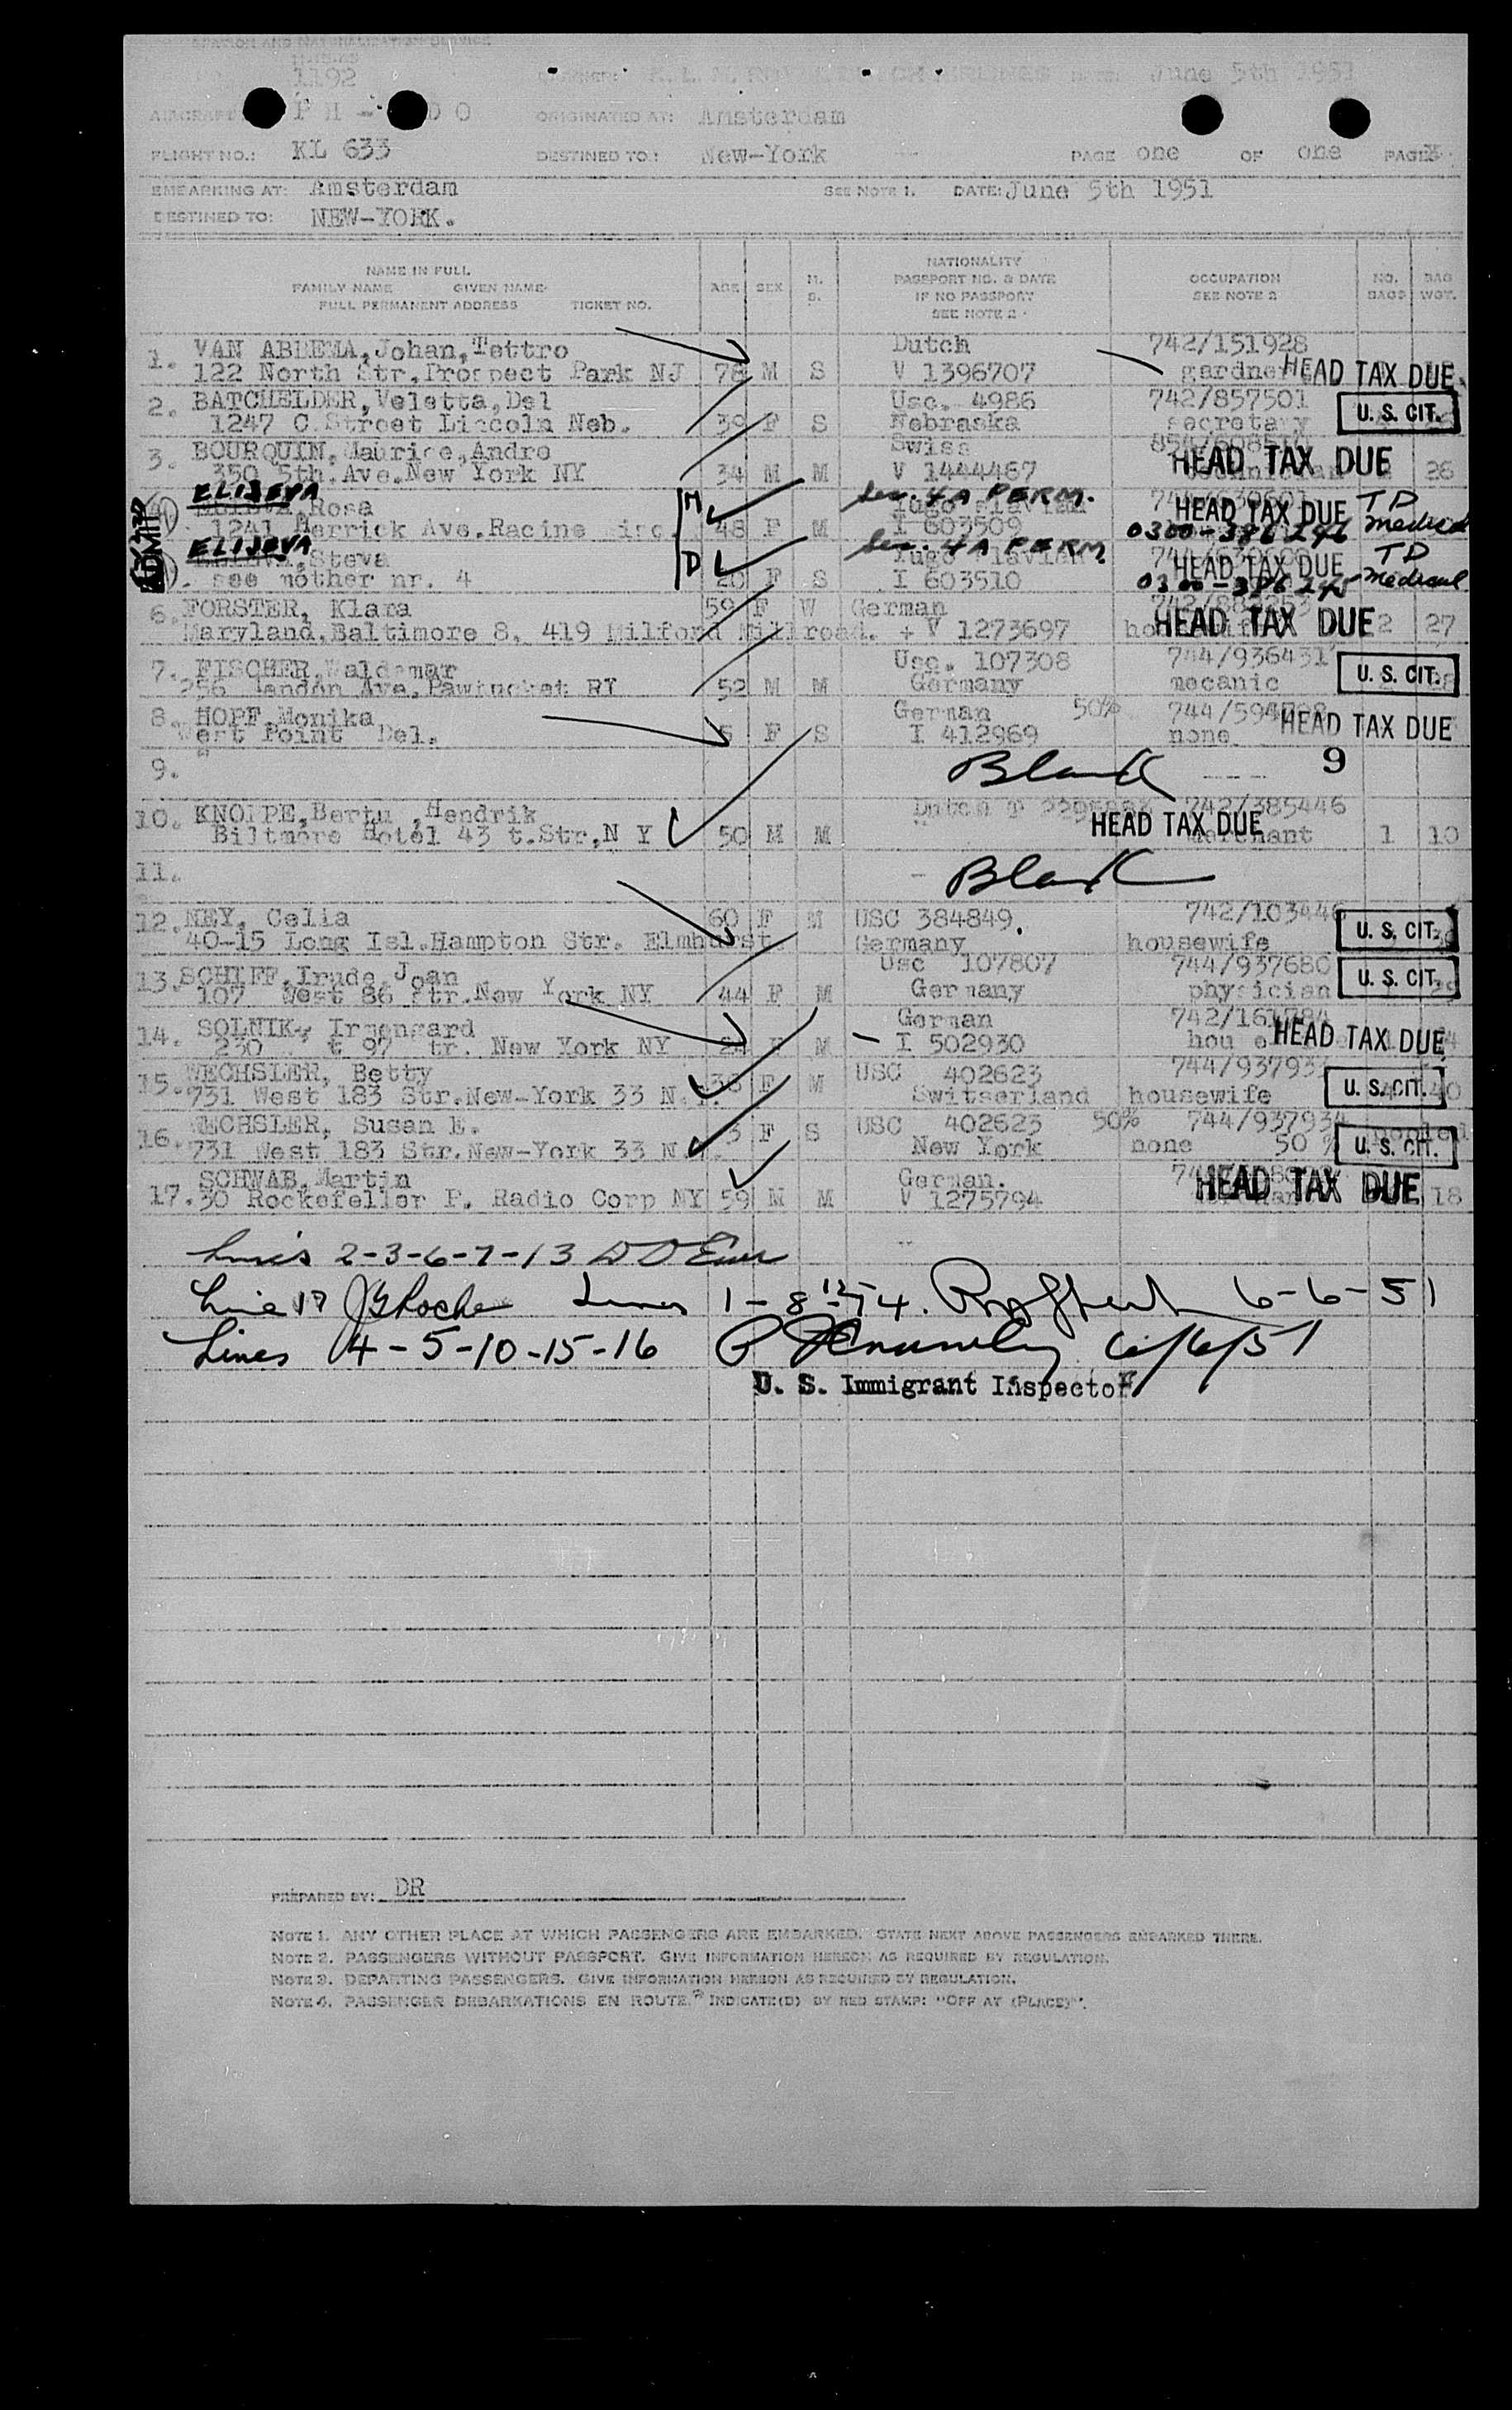 1192 June 5th 1951
AIRCRAFT P H - D O ORIGINATED AT: Amsterdam
FLIGHT NO.: KL 633 DESTINED TO: New-York PAGE one OF one PAGES
EMBARKING AT: Amsterdam SEE NOTE 1. DATE: June 5th 1951
DESTINED TO: NEW-YORK.
NAME IN FULL
FAMILY NAME GIVEN NAME
FULL PERMANENT ADDRESS TICKET NO.
AGE SEX M. S.
NATIONALITY
PASSPORT NO. & DATE
IF NO PASSPORT
SEE NOTE 2
OCCUPATION
SEE NOTE 2
NO. BAGS
BAG WGT.
1. VAN ABBEMA, Johan, Tettro Dutch 742/151928
122 North Str. Prospect Park NJ 78 M S V 1396707 HEAD TAX DUE
2. BATCHELDER, Veletta, Del Usc. 4986 742/857501
1247 C Street Lincoln Neb. 39 F S Nebraska secretary U. S. CIT.
3. BOURQUIN, Maurice, Andro Swiss
350 5th. Ave. New York NY 34 M M V 1444467 HEAD TAX DUE 26
ELIJEVA Rosa 4A PERM. HEAD TAX DUE TD
1241 Merrick Ave. Racine 48 F M I 603509 0300-386246 medical
ELIJEVA Steva 4A PERM HEAD TAX DUE TD
see mother nr. 4 20 F S I 603510 medical
6. FORSTER, Klara 59 F W German
Maryland, Baltimore 8. 419 Milford Millroad. + V 1273697 HEAD TAX DUE 2 27
7. FISCHER, Waldemar Usc. 107308 744/936431
256 Ave. Pawtucket RI 52 M M Germany mecanic U. S. CIT.
8. HOPF, Monika German 50%
West Point Del. F S I 412969 none HEAD TAX DUE
9. Blank 9
10. Hendrik 742/385446
Biltmore Hotel 43 t. Str. N Y 50 M M HEAD TAX DUE merchant 1 10
11. Blank
12. NEY, Celia 60 F M USC 384849. 742/103446
40-15 Long Isl. Hampton Str. Elmhurst. Germany housewife U. S. CIT.
13. SCHIFF, Iruda, Joan Usc 107807 744/937680
107 West 86 Str. New York NY 44 F M Germany physician U. S. CIT.
14. SOLNIK, Irmengard German
230 97 tr. New York NY F M I 502930 HEAD TAX DUE
15. WECHSLER, Betty F M USC 402623
731 West 183 Str. New-York 33 N.Y. Switserland housewife U. S. CIT. 40
16. WECHSLER, Susan E. 3 F S USC 402623 50% 744/937934
731 West 183 Str. New-York 33 N.Y. New York none 50 % U. S. CIT.
SCHWAB, Martin German.
17. 30 Rockefeller P. Radio Corp NY 59 M M V 1275794 HEAD TAX DUE 18
2-3-6-7-13
Line 17 JG Roche Lines 1-8-12-14. 6-6-51
Lines 4-5-10-15-16 6/6/51
U. S. Immigrant Inspector
PREPARED BY: DR
NOTE 1. ANY OTHER PLACE AT WHICH PASSENGERS ARE EMBARKED. STATE NEXT ABOVE PASSENGERS EMBARKED THERE.
NOTE 2. PASSENGERS WITHOUT PASSPORT. GIVE INFORMATION HEREON AS REQUIRED BY REGULATION.
NOTE 3. DEPARTING PASSENGERS. GIVE INFORMATION HEREON AS REQUIRED BY REGULATION.
NOTE 4. PASSENGER DEBARKATIONS EN ROUTE. INDICATE(D) BY RED STAMP: "OFF AT (PLACE)".